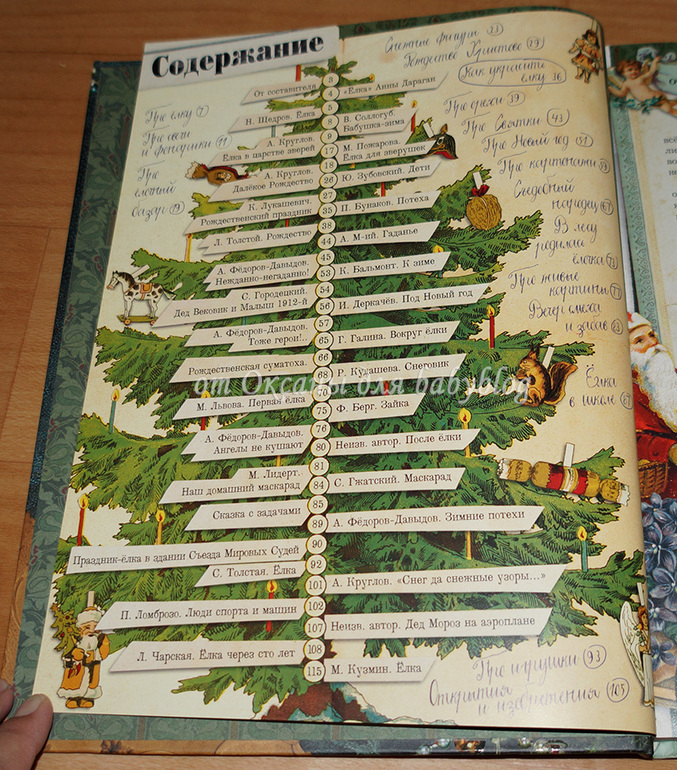 Содержание
Снежные фигуры 23
Рождество Христово 29
Как украсить
ёлку 36
Про ёлку 7
Про свечи
и фонарики 11
Про
ёлочный
базар 19
Про орехи 39
Про Святки 43
Про Новый год 51
Про картонажи
Съедобный
наряд
В лесу
родилась
ёлочка
Про живые
картины
и забав
Ёлка
в школе 87
Про игрушки 93
Открытия
и изобретения 105
От составителя 3
4 «Ёлка» Анны Дараган
Н. Щедров. Ёлка 5
8 В. Соллогуб.
Бабушка-зима
А. Круглов. 9
Ёлка в царстве зверей
17 М. Пожарова.
Ёлка для зверушек
А. Круглов. 18
Далёкое Рождество
26 Ю. Зубовский. Дети
К. Лукашевич. 27
Рождественский праздник
35 П. Бунаков. Потеха
Л. Толстой. Рождество 38
44 А. М-ий. Гаданье
А. Фёдоров-Давыдов. 45
Нежданно-негаданно!
53 К. Бальмонт. К зиме
С. Городецкий. 54
Дед Вековик и Малыш 1912-й
56 И. Деркачёв. Под Новый год
А. Фёдоров-Давыдов. 57
Тоже герои!..
65 Г. Галина. Вокруг ёлки
Рождественская суматоха. 66
68 Р. Кудашева. Снеговик
М. Львова. Первая ёлка 70
75 Ф. Берг. Зайка
А. Фёдоров-Давыдов. 76
Ангелы не кушают
80 Неизв. автор. После ёлки
М. Лидерт. 81
Наш домашний маскарад
84 С. Гжатский. Маскарад
Сказка с задачами 85
89 А. Фёдоров-Давыдов. Зимние потехи
Праздник-ёлка в здании Съезда Мировых Судей 90
С. Толстая. Ёлка 92
101 А. Круглов. «Снег да снежные узоры...»
П. Ломброзо. Люди спорта и машин 102
107 Неизв. автор. Дед Мороз на аэроплане
Л. Чарская. Ёлка через сто лет 108
115 М. Кузмин. Ёлка
от Оксаны для babyblog